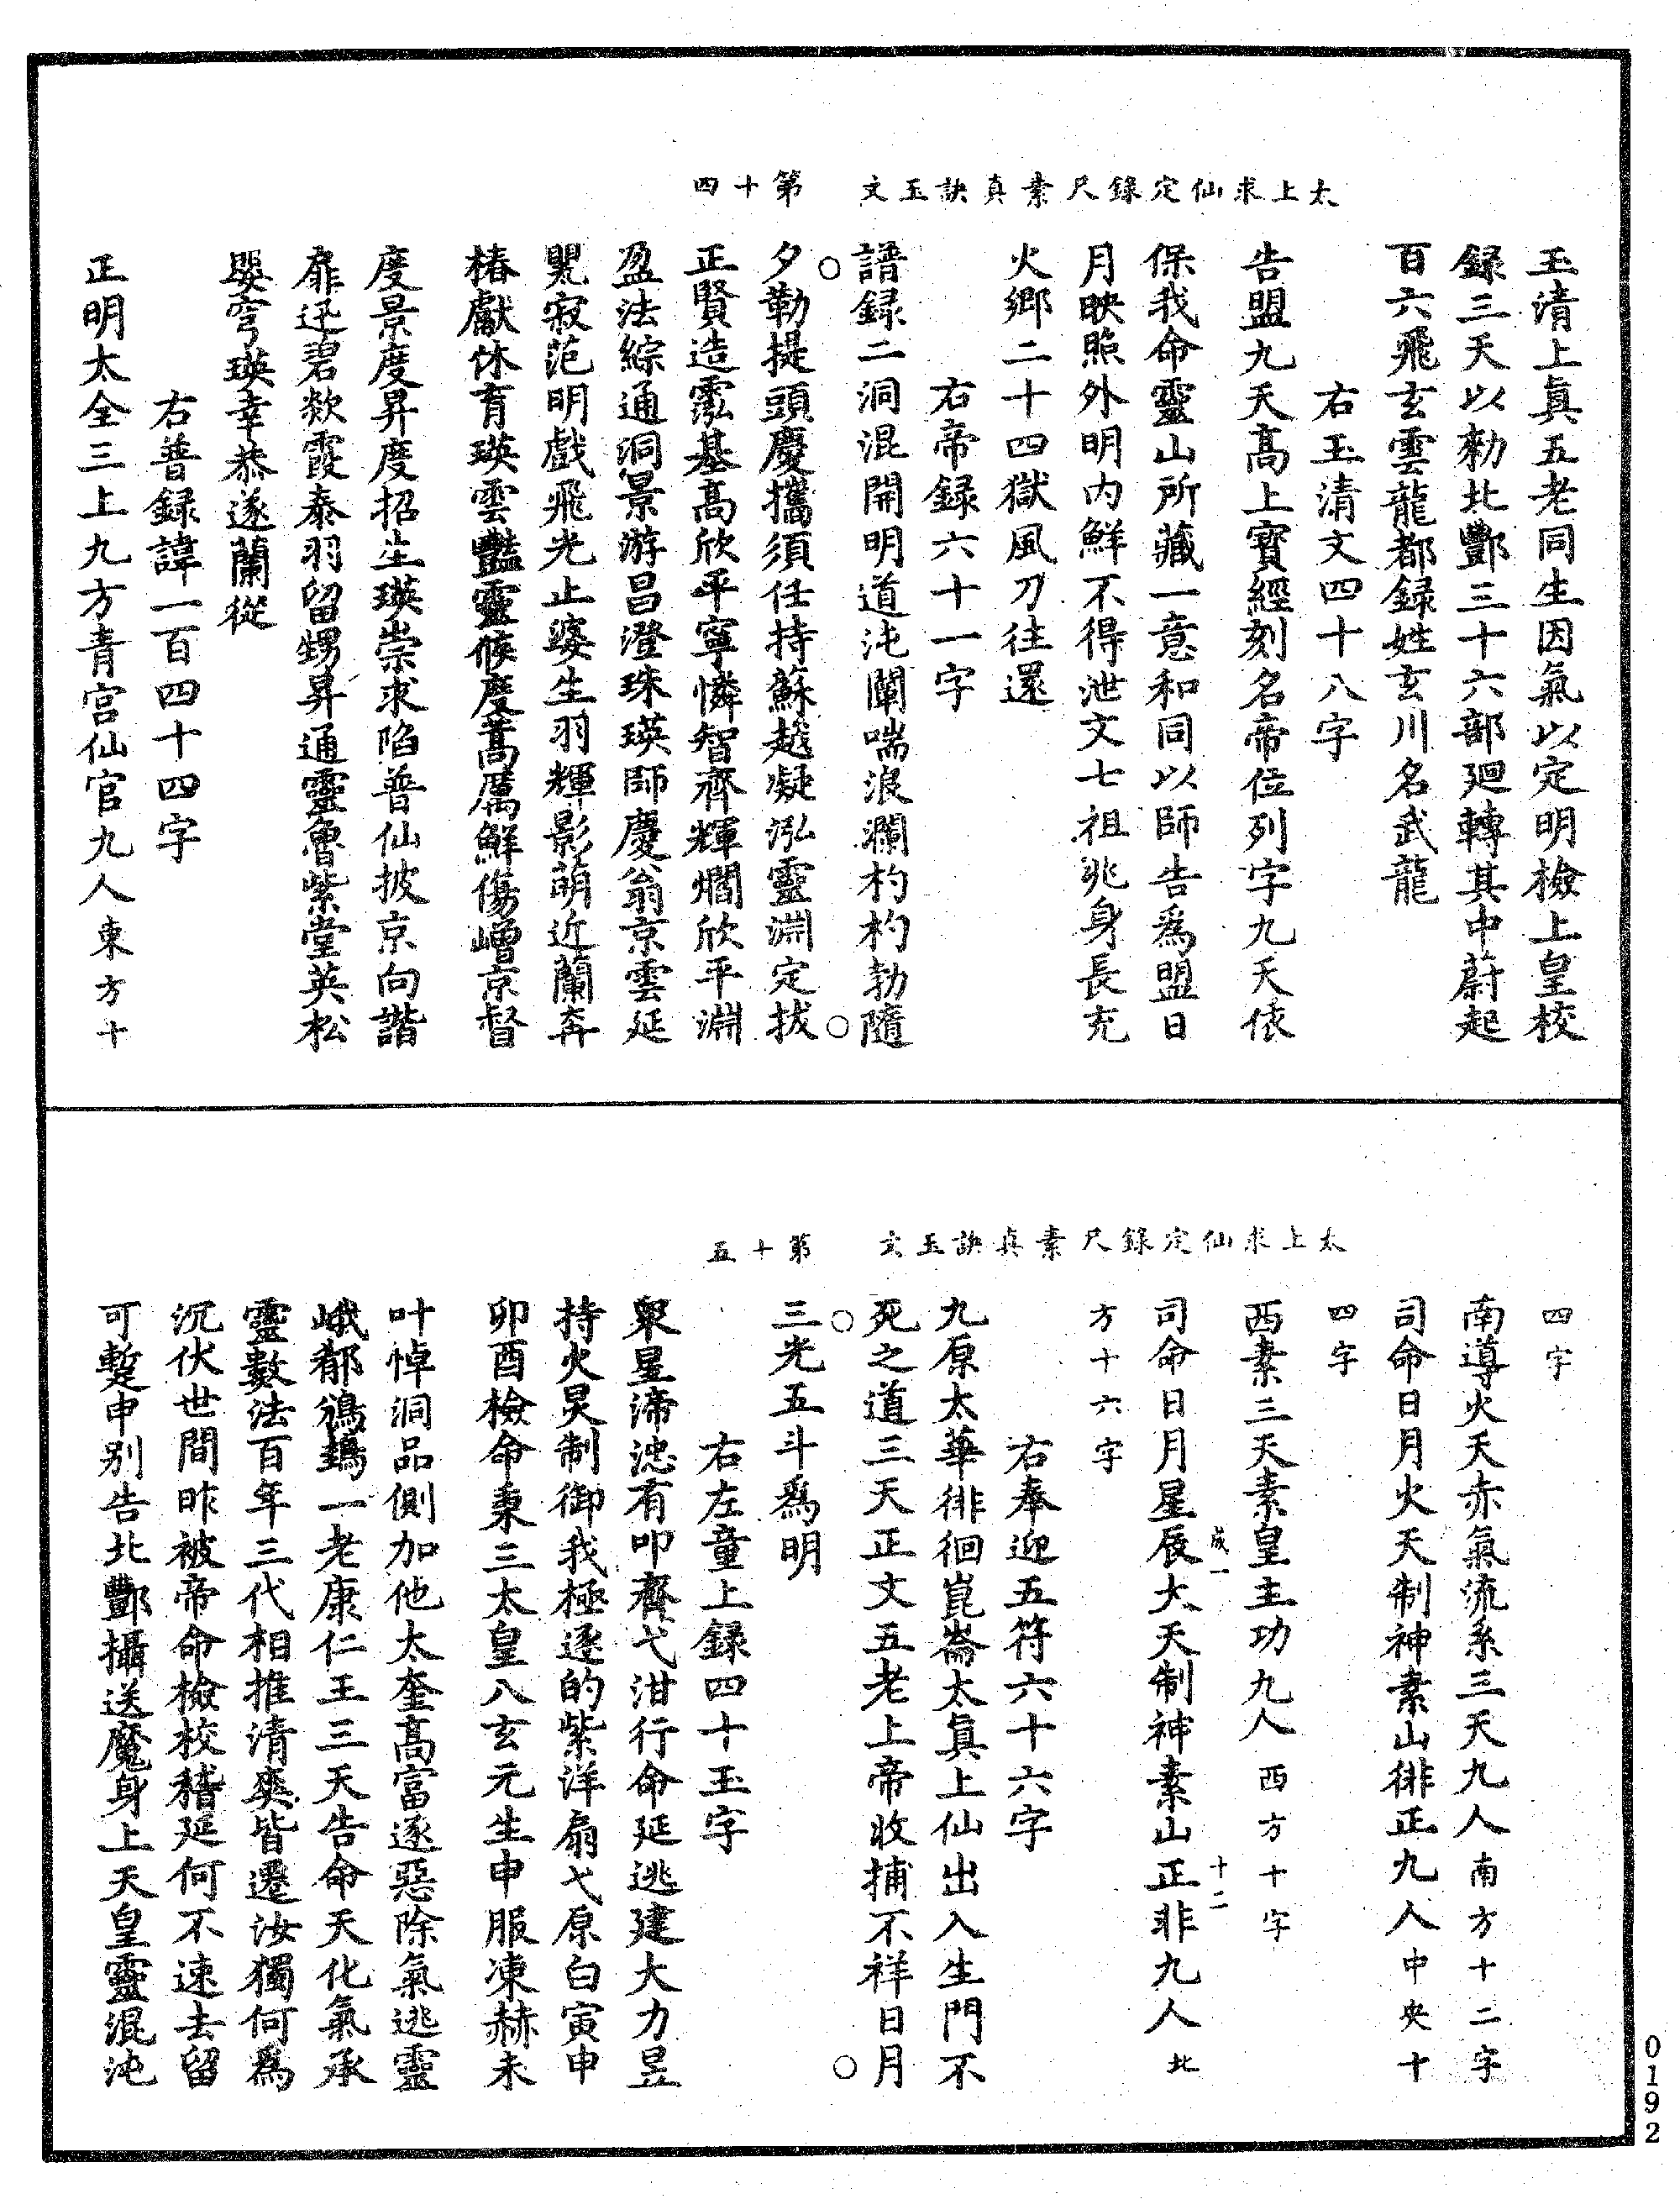 太上求仙定錄尺素真訣玉文　第十四
玉清上真五老同生因氣以定明檢上皇校
録三天以勑北酆三十六部廻轉其中蔚起
百六飛玄雲龍都録姓玄川名武龍
右玉清文四十八字
告盟九天高上寳經刻名帝位列字九天依
保我命靈山所藏一意和同以師告為盟日
月映照外明內鮮不得泄文七祖兆身長充
火鄉二十四獄風刀往還
右帝録六十一字
譜録二洞混開明道沌闡喘浪瀾杓杓勃隨
夕勒提頭慶攜須任持蘇越凝泓靈淵定拔
正賢造霐基高欣平寧憐智齊輝燗欣平淵
盈法綜通洞景游昌澄珠瑛師慶翁京雲延
寂范明戲飛光止婆生羽輝影萌近蘭奔
椿獻休育瑛雲豔靈候度蒿厲鮮傷嶒京督
度景度昇度招生瑛崇求陷普仙披京向諧
扉迅碧欻霞泰羽留甥昇通靈魯紫堂英松
嬰穹瑛幸恭遂蘭從
右普録諱一百四十四字
正明太全三上九方青宫仙官九人東方十
太上求仙定錄尺素真訣玉文　第十五
四字
南導火天赤氣流系三天九人南方十二字
司命日月火天制神素山徘正九人中央十
四字
西素三天素皇主功九人西方十字
咸一　十二
司命日月星辰大天制神素山正非九人北
方十六字
右奉迎五符六十六字
九原太華徘徊崑崙太眞上仙出入生門不
死之道三天正文五老上帝收捕不祥日月
三光五斗爲明
右左童上録四十玉字
衆星渧㴓有叩齊弋泔行命延逃建大力昱
持火炅制御我極逐的紫洋扇弋原白寅申
卯酉檢命秉三太皇八玄元生申服凍赫未
叶悼洞品側加他太奎高富逐惡除氣逃靈
峨都鵷鵄一老康仁王三天告命天化氣承
靈數法百年三代相推清爽皆遷汝獨何爲
沉伏世間昨被帝命檢校稽延何不速去留
可蹔申别告北酆攝送魔身上天皇靈混沌
0192